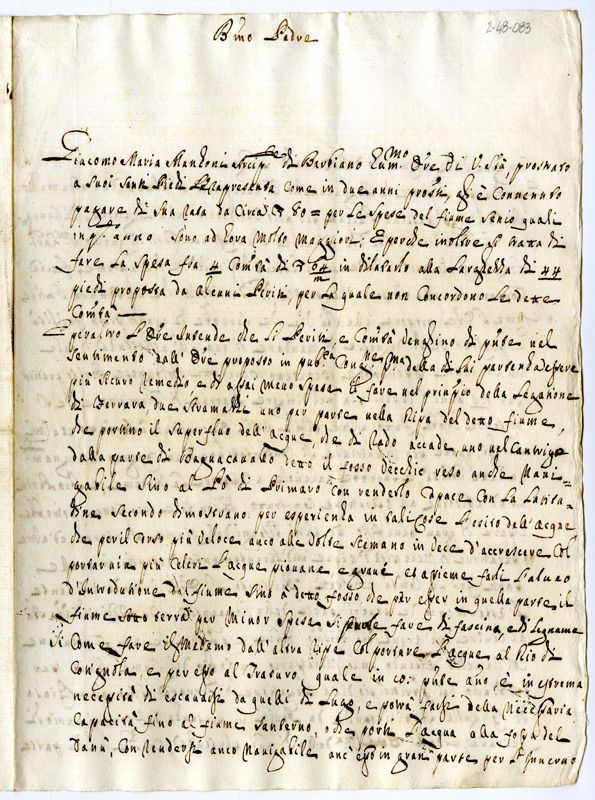 2-48-083
B.mo Padre
Giacomo Maria Manzoni Arcip.te di Barbiano Hum.mo Ore di V. Stà, prostrato
a suoi Santi Piedi Le rapresenta come in due anni prossi, gl'è convenuto
pagare di sua rata da circa 80 = per le spese del fiume Senio quali
in q.to anno sono ad hora molto maggiori; E perche inoltre si tratta di
fare la spesa fra 4 Com.tà di 64 in dilatarlo alla larghezza di 44
piedi proposta da alcuni Periti per la quale non concordono le dette
Com.tà
E peraltro l'Ore intende che li Periti, e Com.tà venghino di pnte nel
sentimento dall' Ore proposto in pub.ca Cong.ne ma della di lui parte ed essere
più sicuro remedio e di assai meno spesa il fare nel principio della Legatione
di Ferrara, due Diramatti uno per parte nella Ripa del detto fiume,
che portino il superfluo dell' acque, che di rado accade, uno nel
dalla parte di Bagnacavallo detto il fosso Vecchio reso anche Navi=
gabile sino al Pò di Primaro con renderlo capace con la latitu=
dine secondo dimostrano per esperienza in tali cose l'esito dell' acque
che per il corso più veloce anco alle volte scemano in vece d'accrescere col
portar via più celeri l'acque piovane e gravi, et assieme farli l'alveo
d'Introdutione dal fiume sino à detto fosso che per esser in quella parte il
fiume sotto terra per minor spesa si puole fare di fascina, e di Legname
Si come fare il medemo dall' altra ripe col portare l'acque al Rio di
Cotignola, e per esso al Trasuro, quale in co: pnte año, è in estrema
necessità di escavarsi da quelli di Lugo, e potrà farsi della necessaria
Capacità fino al fiume Santerno, o che porti l'acqua alla fossa del
con rendersi anco Navigabile anch'esso in gran parte per l'Inverno